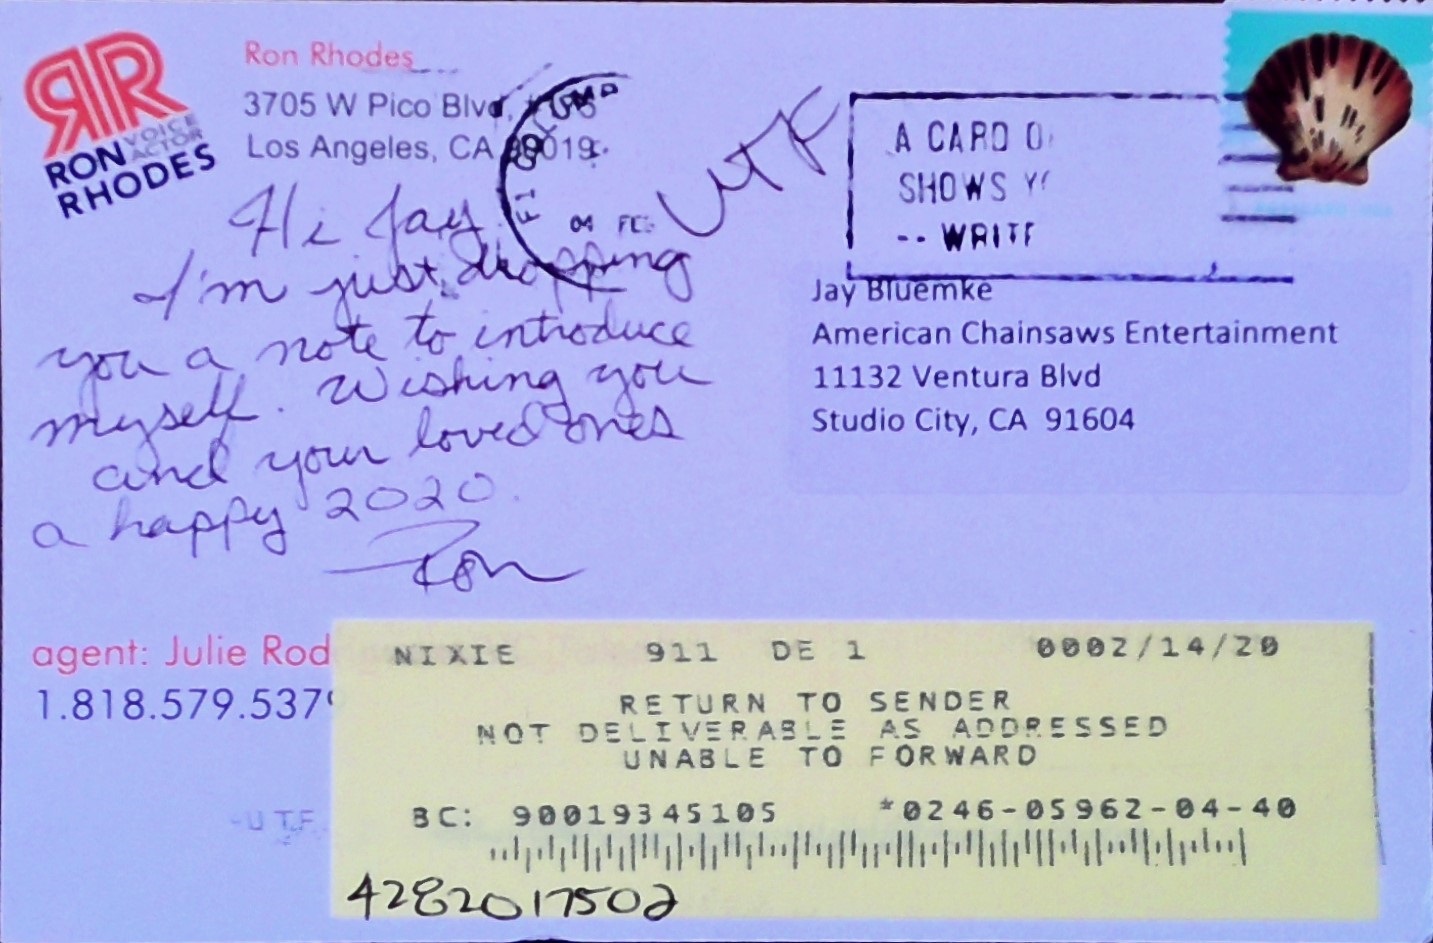 RR
RON VOICE ACTOR
RHODES
Ron Rhodes
3705 W Pico Blvd,
Los Angeles, CA 90019
04 FE
UTF
A CARD O
SHOWS Y
-- WRITE
Hi Jay
I'm just dropping
you a note to introduce
myself. Wishing you
and your loved ones
a happy 2020.
Ron
Jay Bluemke
American Chainsaws Entertainment
11132 Ventura Blvd
Studio City, CA 91604
agent: Julie Rod
1.818.579.537
-UTF
NIXIE 911 DE 1 0002/14/20
RETURN TO SENDER
NOT DELIVERABLE AS ADDRESSED
UNABLE TO FORWARD
BC: 90019345105 *0246-05962-04-40
4282017502